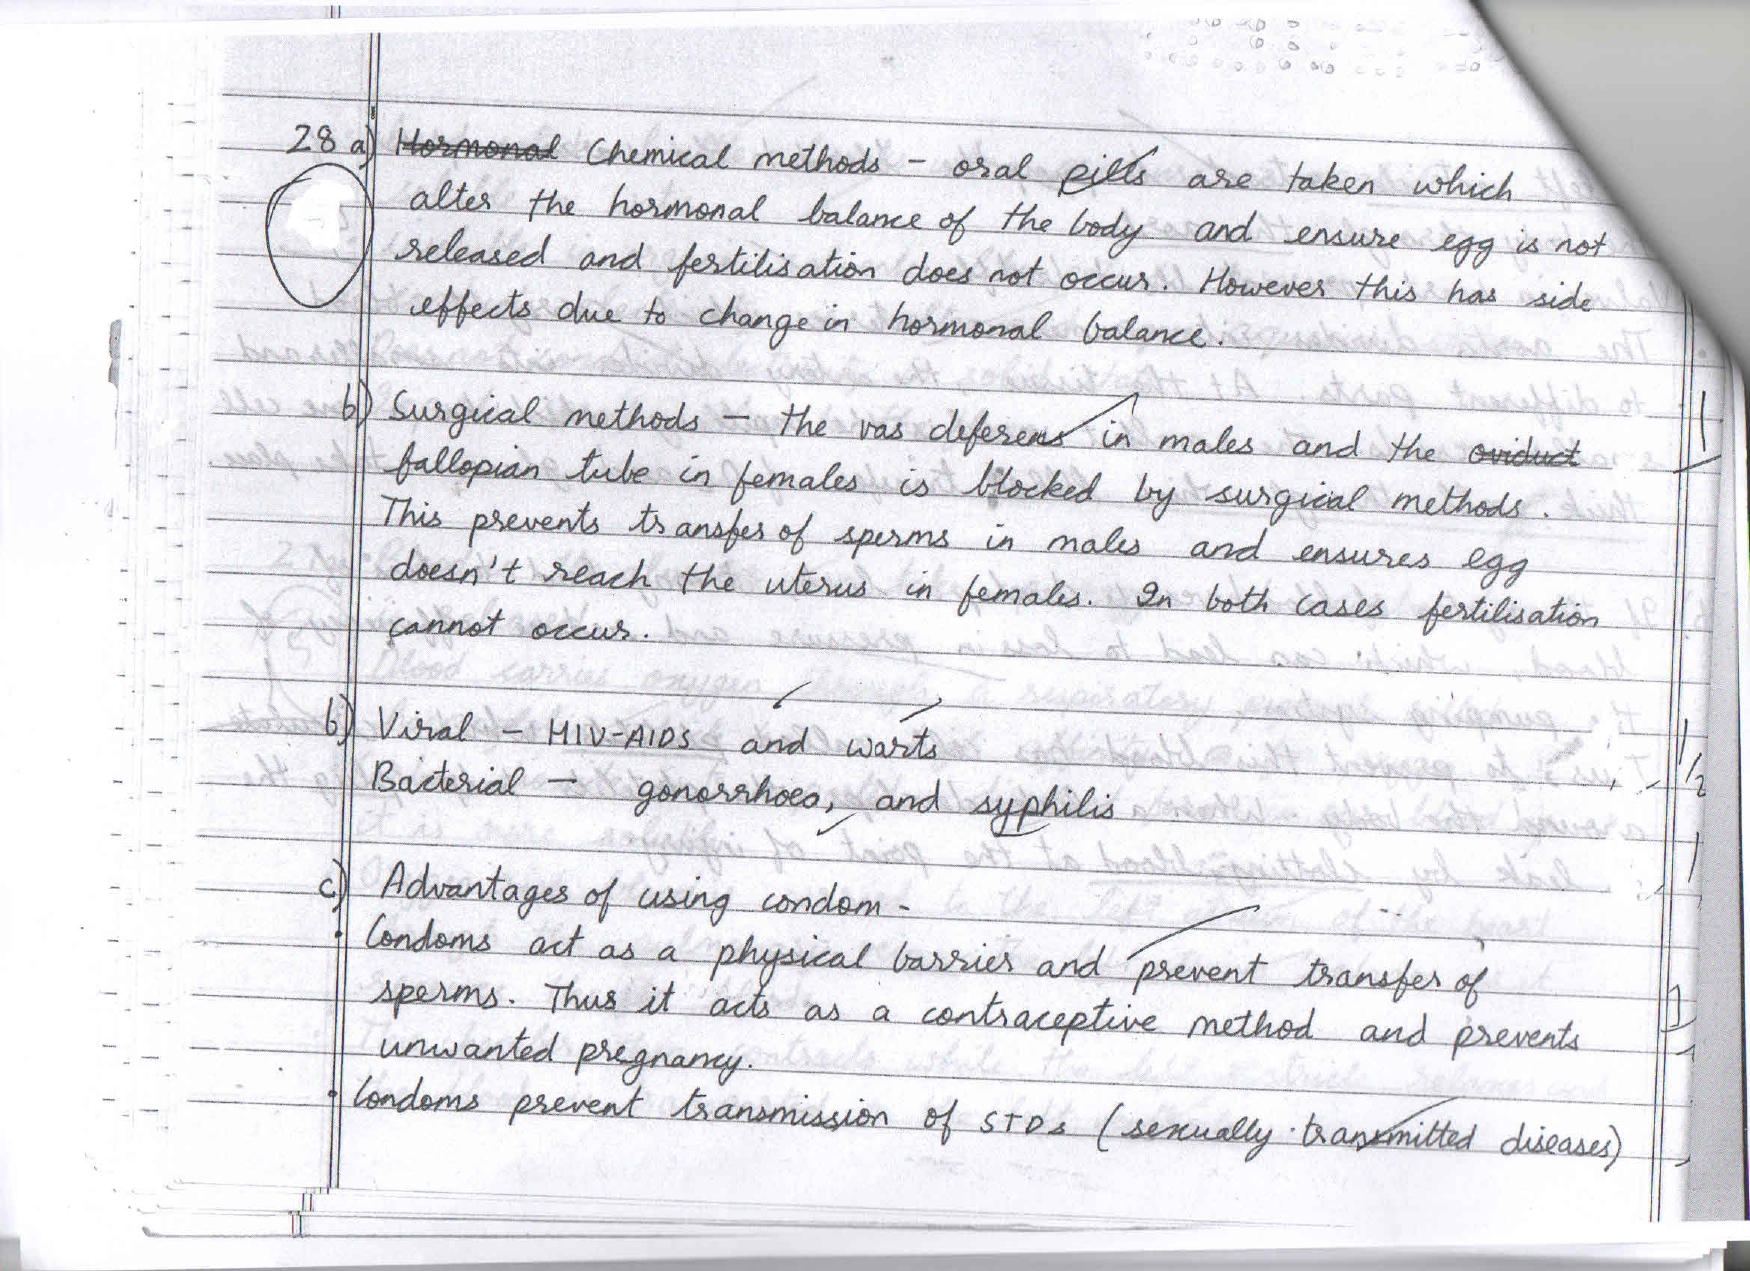 28 a) Hormonal Chemical methods - oral pills are taken which
alter the hormonal balance of the body and ensure egg is not
released and fertilisation does not occur. However this has side
effects due to change in hormonal balance.
b) Surgical methods - the vas deferens in males and the oviduct
fallopian tube in females is blocked by surgical methods.
This prevents transfer of sperms in males and ensures egg
doesn't reach the uterus in females. In both cases fertilisation
cannot occur.
b) Viral - HIV-AIDS and warts
Bacterial - gonorrhoea, and syphilis
c) Advantages of using condom -
• Condoms act as a physical barrier and prevent transfer of
sperms. Thus it acts as a contraceptive method and prevents
unwanted pregnancy.
• Condoms prevent transmission of STDs (sexually transmitted diseases)